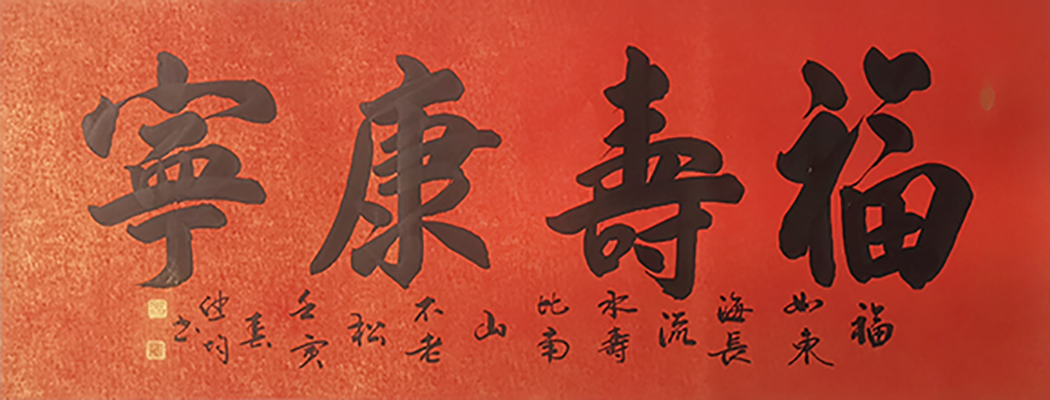 福壽康寧
福
如東
海長
流
水壽
比南
山
不老
松
壬寅
春
均
书